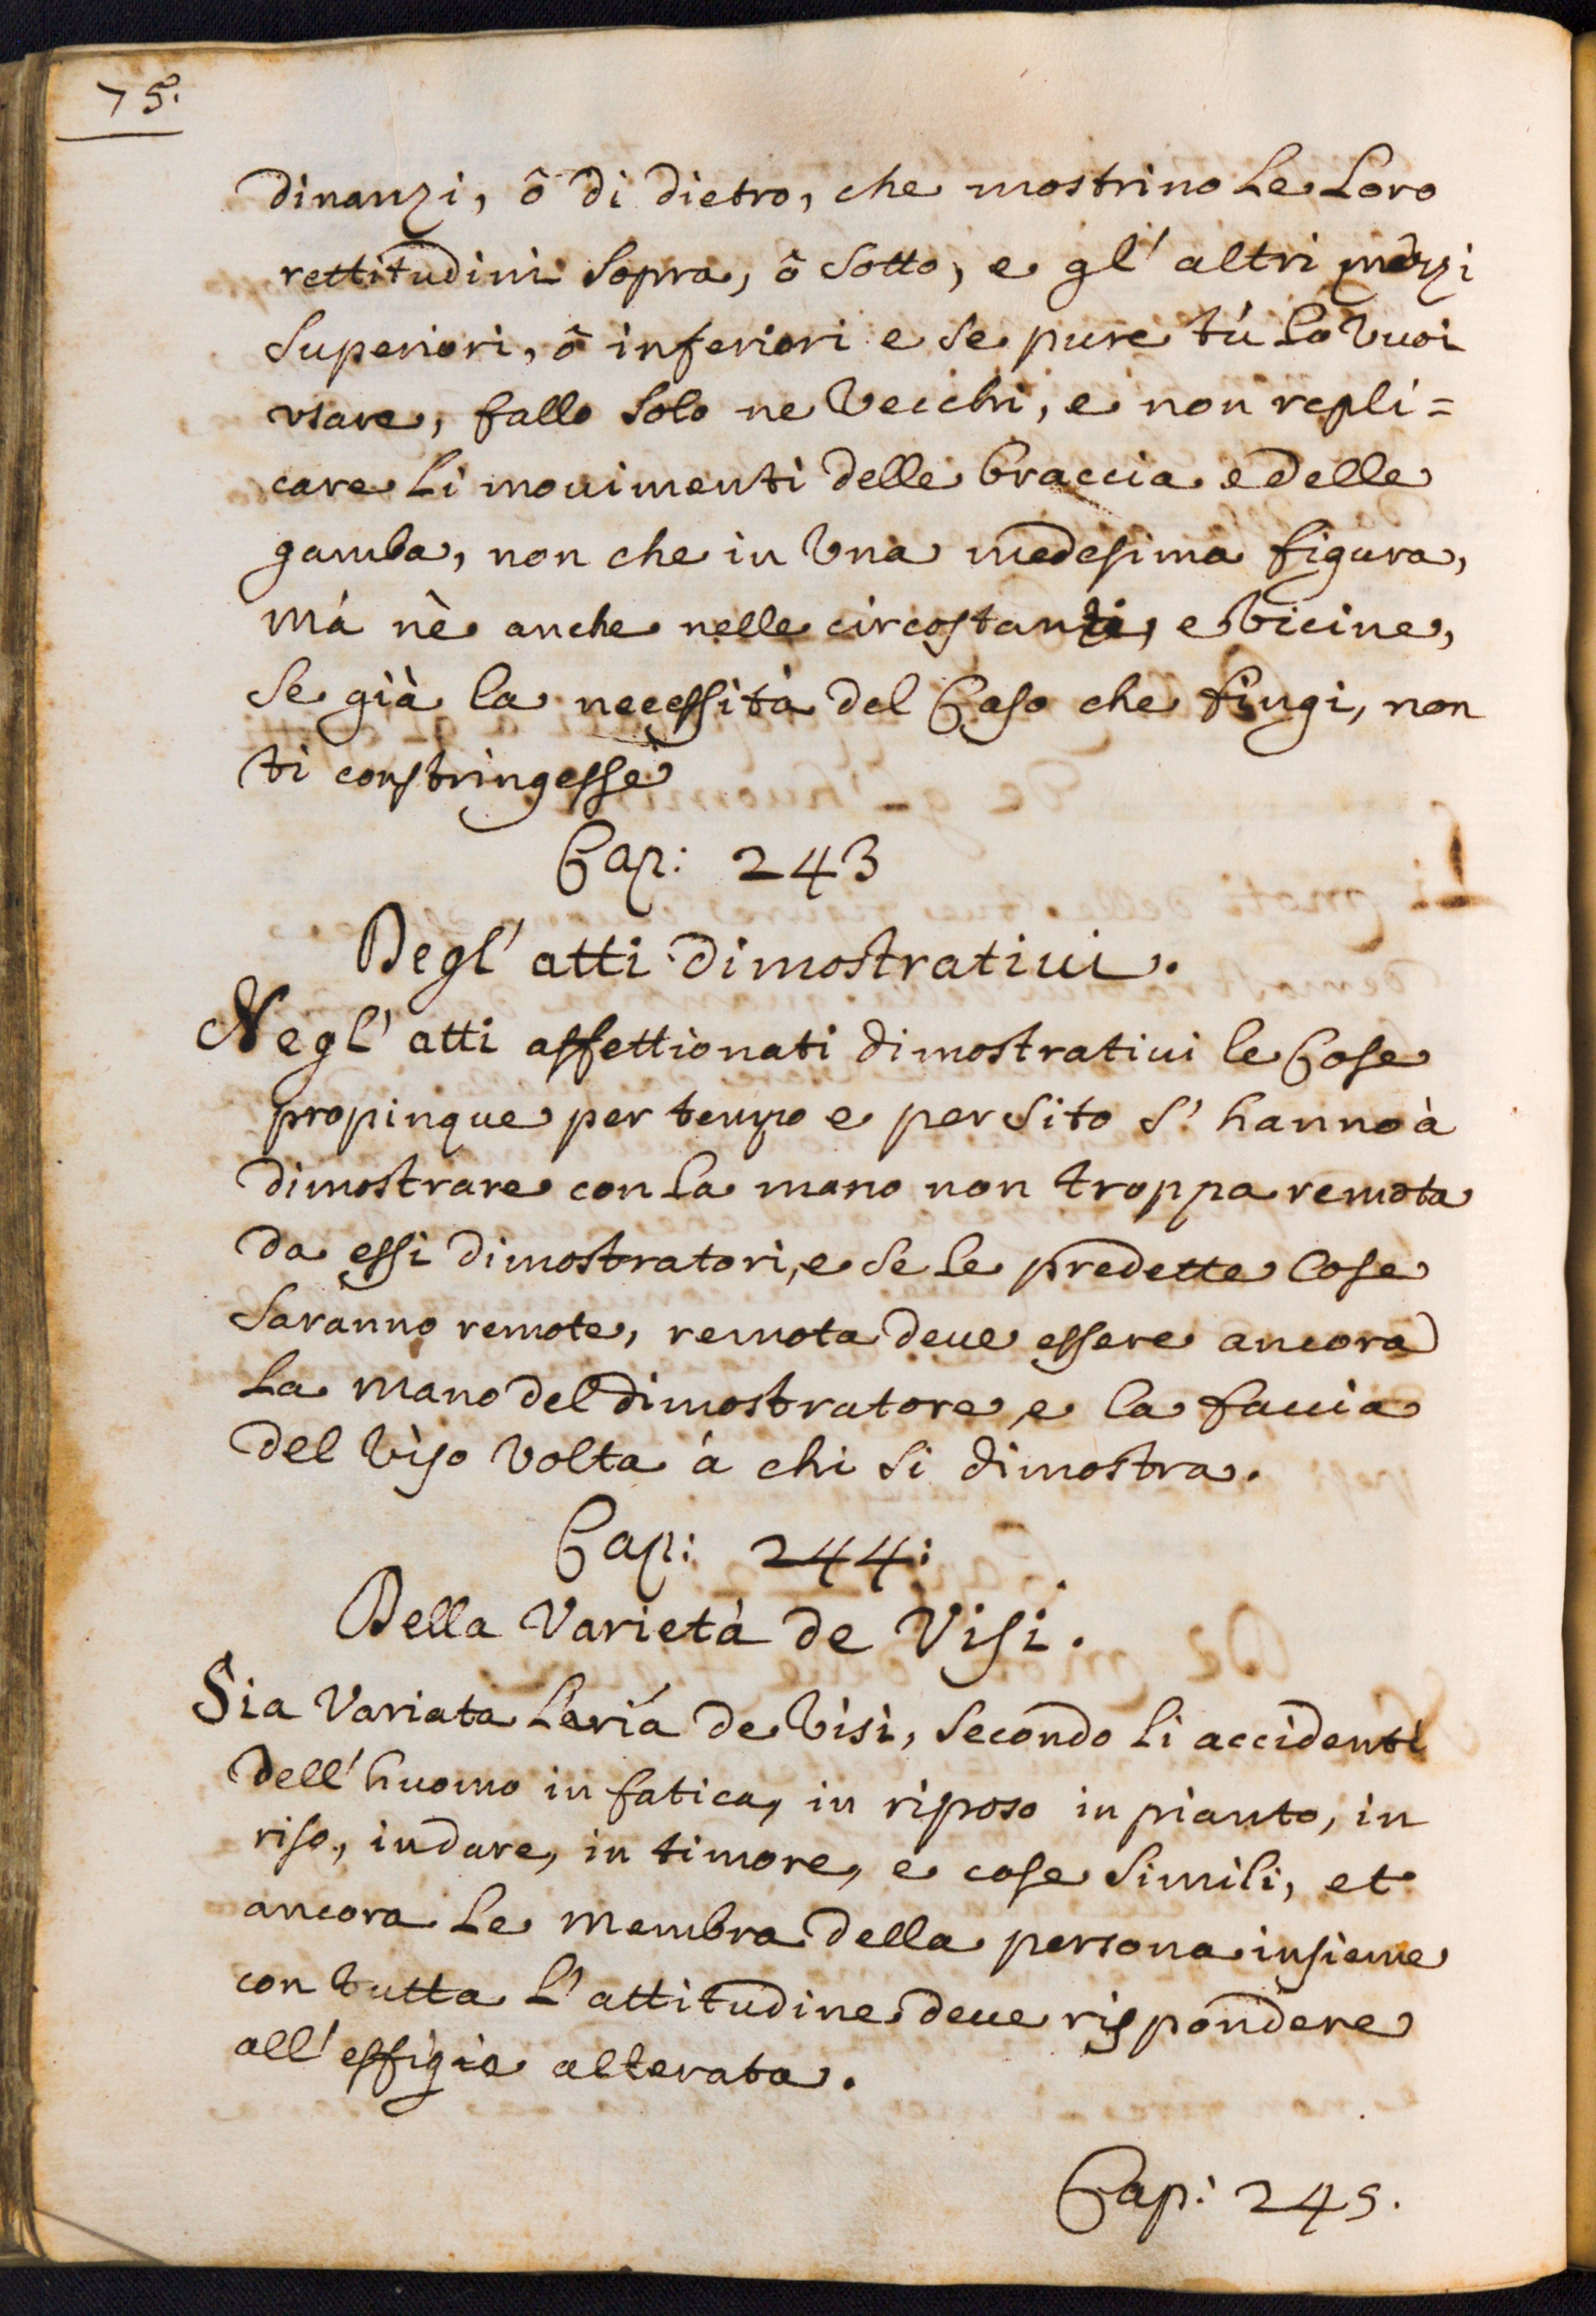 75.
dinanzi, ô di dietro, che mostrino le loro
rettitudini sopra, ô sotto, e gl' altri mezzi
superiori, ô inferiori e se pure tù lo vuoi
vsare, fallo solo ne vecchi, e non repli=
care li mouimenti delle braccia e delle
gamba, non che in vna medesima figura,
mà nè anche nelle circostanti, e vicine,
se già la necessità del Caso che fingi, non
ti constringesse
Cap: 243
Degl' atti dimostratiui.
Negl' atti affettionati dimostratiui le Cose
propinque per tempo e per sito s' hanno à
dimostrare con la mano non troppa remota
da essi dimostratori, e se le predette Cose
saranno remote, remota deue essere ancora
la mano del dimostratore e la faccia
del viso volta à chi si dimostra.
Cap: 244:
Della Varietà de Visi.
Sia Variata l'aria de visi, secondo li accidenti
dell' huomo in fatica, in riposo in pianto, in
riso, indare, in timore, e cose simili, et
ancora le membra della persona insieme
con tutta l' attitudine deue rispondere
all' effigie alterata.
Cap: 245.